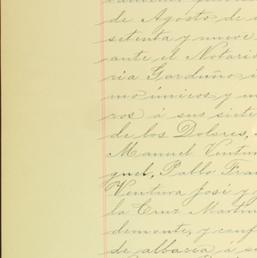 de Agosto de
setenta y nueve
ante el Notario
ría Garduño
mo únicos y
ros á sus siete
de los Dolores,
Manuel Ventur
guel, Pablo Fran
Ventura José y
la Cruz Martin
demente, y conf
de albacea á s